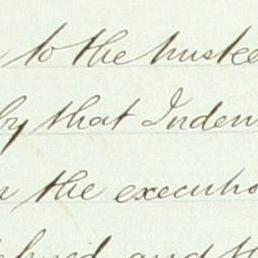 to the trustee
by that Inden
the executio
and th